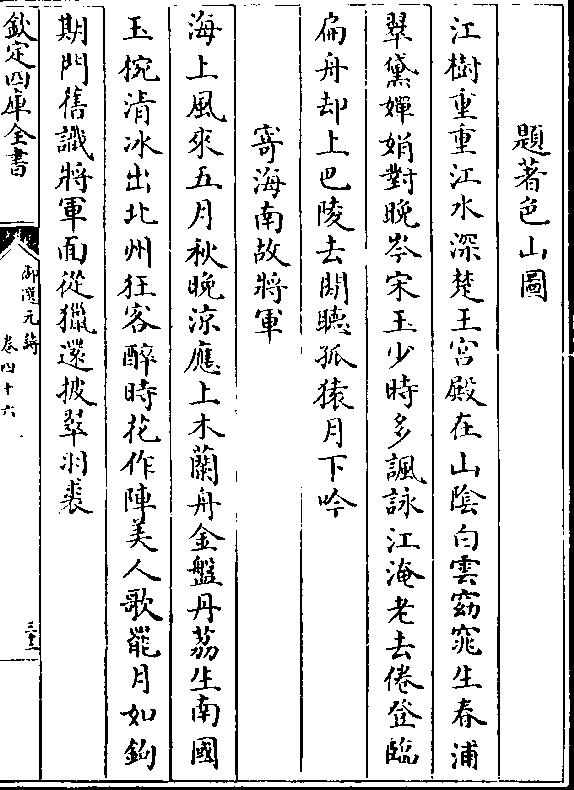 題著色山圖
江樹重重江水深楚王宮殿在山陰白雲窈窕生春浦
翠黛嬋娟對晚岑宋玉少時多諷詠江淹老去倦登臨
扁舟却上巴陵去閒聽孤猿月下吟
寄海南故將軍
海上風來五月秋晚涼應上木蘭舟金盤丹荔生南國
玉椀清冰出北州狂客醉時花作陣美人歌罷月如鉤
期門舊識將軍面從獵還披翠羽裘
欽定四庫全書
御選元詩
卷四十六
三十三